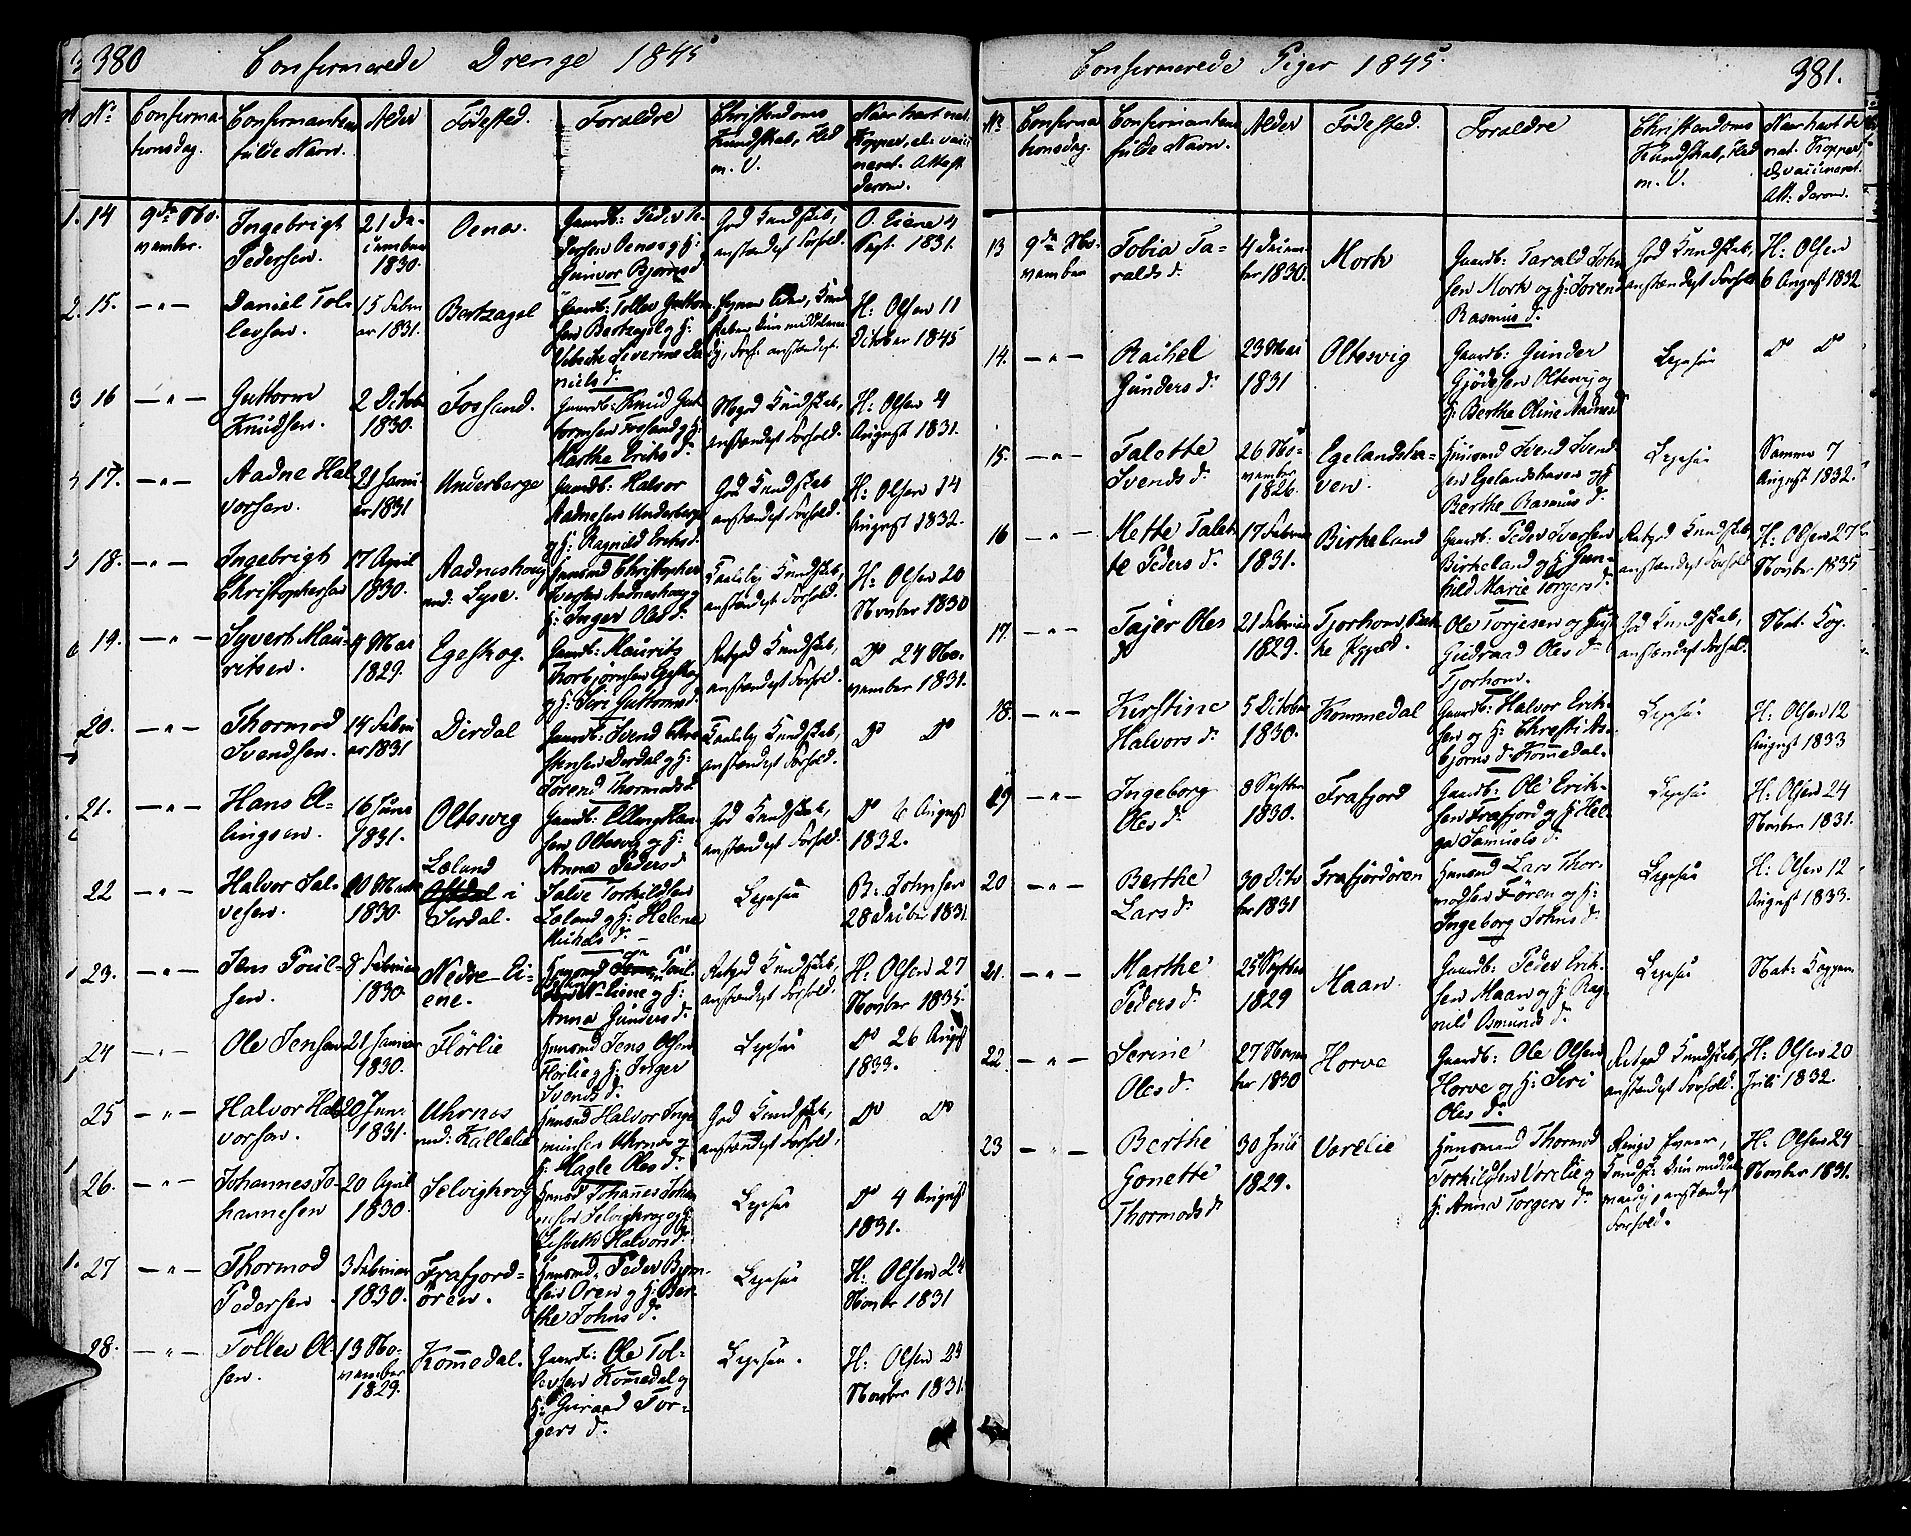 380
Confirmerede Drenge 1845
No
Confirma-
tionsdag.
Confirmantens
fulde Navn.
Alder
Fødested.
Forældre
Christendoms
Kundskab, Flid
m. V.
14
9de No-
vember.
Ingebrigt
Pedersen.
21 De-
cember
1830.
Oenes.
Gaardb: Peder Pe-
dersen Oenes og H:
Gunvor Bjørnsd.
God Kundskab,
anstændigt Forhold.
O. Eiene 4
Sept. 1831.
15.
—"—
Daniel Tol-
levsen.
15 Febru
ar 1831.
Bertzagel
Gaardb: Tollev Guttorm
sen Bertzagel og H:
Severine Da
niels d.
H: Olsen 11
October 1845
16
—"—
Guttorm
Knudsen.
2 Octob
1830.
Fossand.
Gaardb: Knud Gut
tormsen Fossand og H:
Marthe Eriks d.
Meget Kundskab,
anstændigt Forhold.
H: Olsen 4
August 1831.
17.
—"—
Aadne Hal
vorsen.
21 Janu
ar 1831
Underberge
Gaardb: Halvor
Aadnesen Underberge
og H: Ragnild Eriksd.
God Kundskab
anstændigt Forhold.
H: Olsen 14
August 1832.
18.
—"—
Ingebrigt
Christophersen
17 April
1830.
Aadneskoug
und: Lyse.
Huusmd Christopher
Aadneskoug og
H: Inger Oles d.
Taalelig Kundskab,
anstændigt Forhold.
H: Olsen 20
November 1830
19.
—"—
Syvert Mau-
ritsen.
4 Mai
1829.
Egeskog.
Gaardb: Mauritz
Thorbjørnsen Egeskog
og H: Siri Guttormsd.
Retgod Kundskab,
anstændigt Forhold.
Do 24 No-
vember 1831.
20.
—"—
Thormod
Svendsen.
14 Febru
ar 1831
Dirdal
Gaardb: Svend Chri
stensen Dirdal og H:
Jorend Thormodsd.
Taalelig Kundskab,
anstændigt Forhold.
Do Do
21.
—"—
Hans El-
lingsen.
16 Juni
1831.
Oltesvig
Gaardb: Elling Han
sen Oltesvig og H:
Anna Pedersd.
God Kundskab,
anstændigt Forhold.
Do 6 August
1832.
22
—"—
Halvor Sal-
vesen.
1830.
Læland
i
Sirdal.
Salve Torkildsen
Læland og H: Helene
Michels d.
Ligesaa
B: Johnsen
28 Decbr 1831
23.
—"—
Jens Poul-
sen.
8 Februar
1830
Nedre Ei-
ene.
Huusmd Poul
N. Eiene og H:
Anna Gunders d.
Retgod Kundskab,
anstændigt Forhold.
H: Olsen 27
November 1835
24
—"—
Ole Jensen
21 Januar
1830.
Flørlie
Huusmd Jens Olsen
Flørlie og H: Inger
Svends d.
Ligesaa
Do 26 August
1833.
25
—"—
Halvor Hal-
vorsen.
20 Jan:
1831.
Uhrnes
und: Kallelid
Huusmd Halvor Inge
mundsen Uhrnes og
H: Magle Oles d.
God Kundskab,
anstændigt Forhold.
Do Do
26.
—"—
Johannes Jo-
hannesen
20 April
1830.
Selvigkrog
Huusmd Johannes Johan
nesen Selvigkrog og H:
Lisbeth Halvorsd.
Ligesaa
Do 4 August
1831.
27
—"—
Thormod
Pedersen
3 Februar
1830.
Frafjord-
ören.
Huusmd: Peder Bjørn-
sen Ören og H: Ber-
the Johns d.
Ligesaa
H: Olsen 24
Novbr 1831
28.
—"—
Tollev Ol-
sen.
13 No-
vember
1829.
Kommedal.
Gaardb: Ole Tol-
levsen Kommedal og
H: Guraad Tor-
gers d.
Ligesaa.
H: Olsen 23
Novbr 1831
Confirmerede Piger 1845.
381.
No
Confirma
tionsdag.
Confirmantens
fulde Navn.
Alder
Fødested.
Forældre
Christendoms
Kundskab, Flid
m. V.
Naar havt de
nat. Kopper
el. vaccineret.
Att: derom.
13
9de No-
vember
Tobia Ta-
ralds d.
4 Decem-
ber 1830.
Mork
Gaardb: Tarald John
sen Mork og H: Joren
Rasmus d.
God Kundskab,
anstændigt Forhold
H: Olsen
6 August 1832
14.
—"—
Rachel
Gunders d.
23 Mai
1831
Oltesvig
Gaardb: Gunder
Gjødesen Oltesvig og
H: Berthe Oline Aadnesd
Ligesaa
Do Do
15.
—"—
Talette
Svends d.
26 No-
vember
1826.
Egelandsha-
ven.
Huusmd Svend Svend
sen Egelandshaven og H
Berthe Rasmus d.
Ligesaa
Samme 7
August 1832.
16
—"—
Mette Talet-
te Peders d.
17 Februar
1831.
Birkeland
Gaardb: Peder Iversen
Birkeland og H: Gun-
hild Marie Torgers d.
Retgod Kundskab,
anstændigt Forhold
H: Olsen 27
Novber 1835
17.
—"—
Tajer Oles
d.
21 Februar
1829.
Tjorhom,
Ole Torjesen og
Gudraad Oles d.
Tjorhom.
God Kundskab,
anstændigt Forhold.
Nat: Kop.
18.
—"—
Kirstine
Halvors d.
5 October
1830.
Kommedal
Gaardb: Halvor Erik-
sen og H: Christi As-
bjørns d. Kommedal.
Ligesaa
H: Olsen 12
August 1833
19
—"—
Ingeborg
Oles d.
8 Septbr
1830.
Frafjord
Gaardb: Ole Erik-
sen Frafjord og H: Hel-
ga Samuels d.
Ligesaa
H: Olsen 24
Novber 1831.
20
—"—
Berthe
Lars d.
30 Octo
ber 1831
Frafjordören
Huusmd Lars Thor-
modsen Ören og H:
Ingeborg Johns d.
Ligesaa
H: Olsen 12
August 1833.
21.
—"—
Marthe
Peders d.
25 Septbr
1829
Maan.
Gaardb: Peder Erik-
sen Maan og H: Rag-
nild Osmunds d.
Ligesaa
Nat: Kopper
22
—"—
Serine
Oles d.
27 Novem
ber 1830
Horve
Gaardb: Ole Olsen
Horve og H: Siri
Oles d.
Retgod Kundskab,
anstændigt Forhold.
H: Olsen 20
Juli 1832.
23
—"—
Berthe
Gonette
Thormods d.
30 Juli
1829.
Vørelie
Huusmand Thormod
Torkildsen Vørelie og
H: Anna Torgers d.
Ringe Evner,
Kundsk: kun middel-
maadig, anstændigt
Forhold.
H: Olsen 24
Novber 1831.